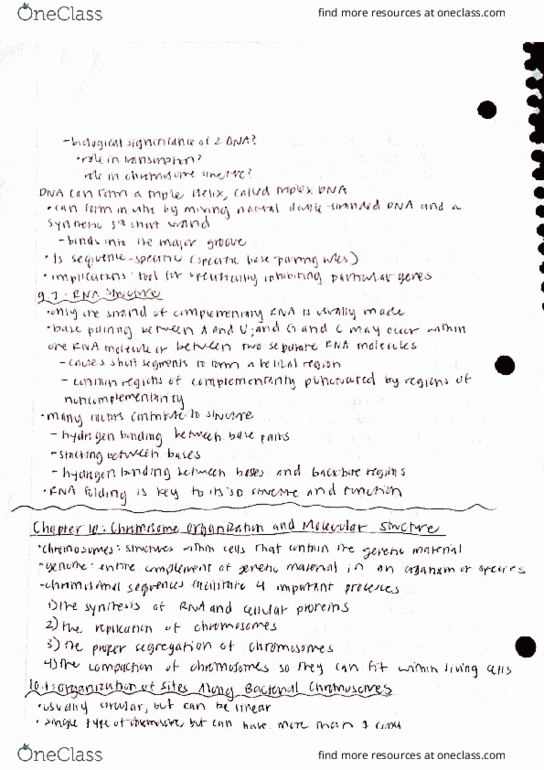 OneClass
find more resources at oneclass.com
-biological significance of Z DNA?
•role in transcription?
role in chromosome structure?
DNA can form a triple helix, called triplex DNA
•can form in vitro by mixing natural double-stranded DNA and a
synthetic short strand
-binds into the major groove
•is sequence-specific (specific base-pairing rules)
•implications: tool for specifically inhibiting particular genes
9.7: RNA structure
•only one strand of complementary RNA is usually made
•base pairing between A and U; and G and C may occur within
one RNA molecule or between two separate RNA molecules
-causes short segments to form a helical region
-common regions of complementarity punctuated by regions of
noncomplementarity
•many factors contribute to structure
-hydrogen bonding between base pairs
-stacking between bases
-hydrogen bonding between bases and backbone regions
•RNA folding is key to its 3D structure and function
Chapter 10: Chromosome Organization and Molecular Structure
•chromosomes: structures within cells that contain the genetic material
•genome: entire complement of genetic material in an organism or species
•chromosomal sequences facilitate 4 important processes
1) the synthesis of RNA and cellular proteins
2) the replication of chromosomes
3) the proper segregation of chromosomes
4) the compaction of chromosomes so they can fit within living cells
10.1: Organization of Sites Along Bacterial Chromosomes
•usually circular, but can be linear
•single type of chromosome, but can have more than 1 copy
OneClass
find more resources at oneclass.com